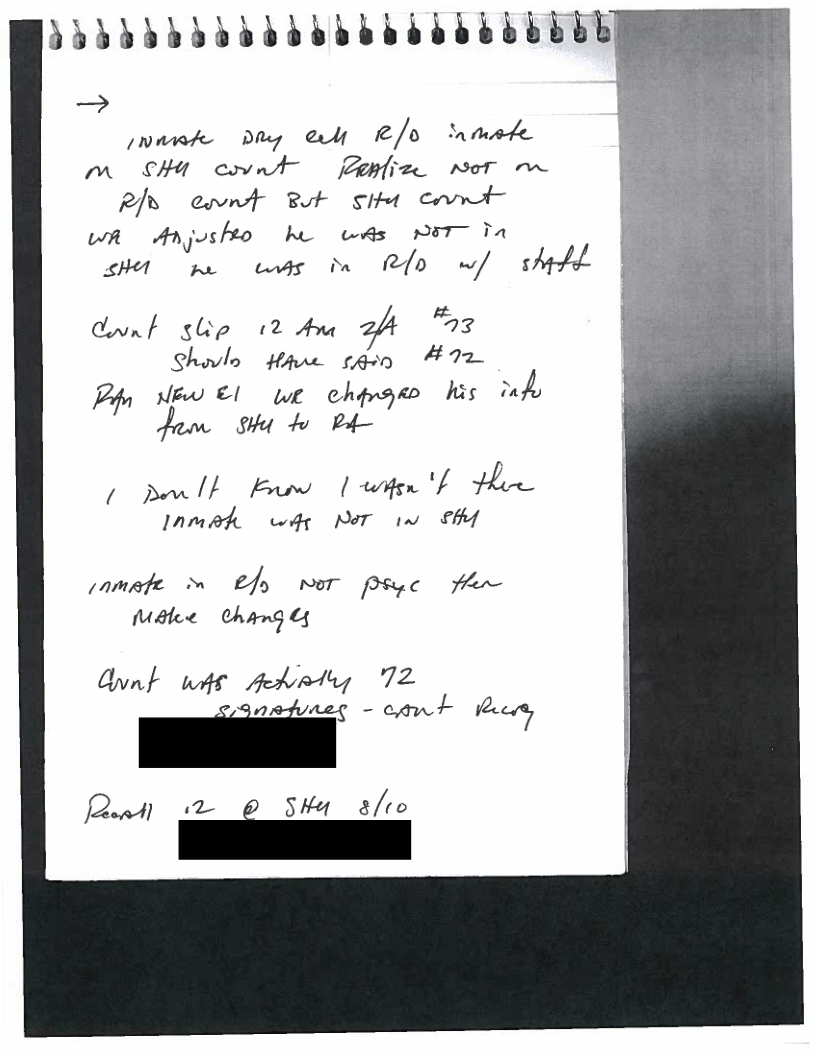 →
INMATE DRY CELL R/D INMATE
ON SHU COUNT REALIZE NOT ON
R/D COUNT BUT SHU COUNT
WE ADJUSTED he WAS NOT in
SHU he WAS in R/D w/ STAFF
Count slip 12 AM Z/A #73
Should HAVE SAID #72
RAN NEW E1 WE changed his info
from SHU to RA
I Don't Know I wasn't there
INMATE WAS NOT IN SHU
INMATE in R/D NOT psyc then
MAKE changes
Count WAS Actually 72
signatures - can't Recog
Recall 12 @ SHU 8/10